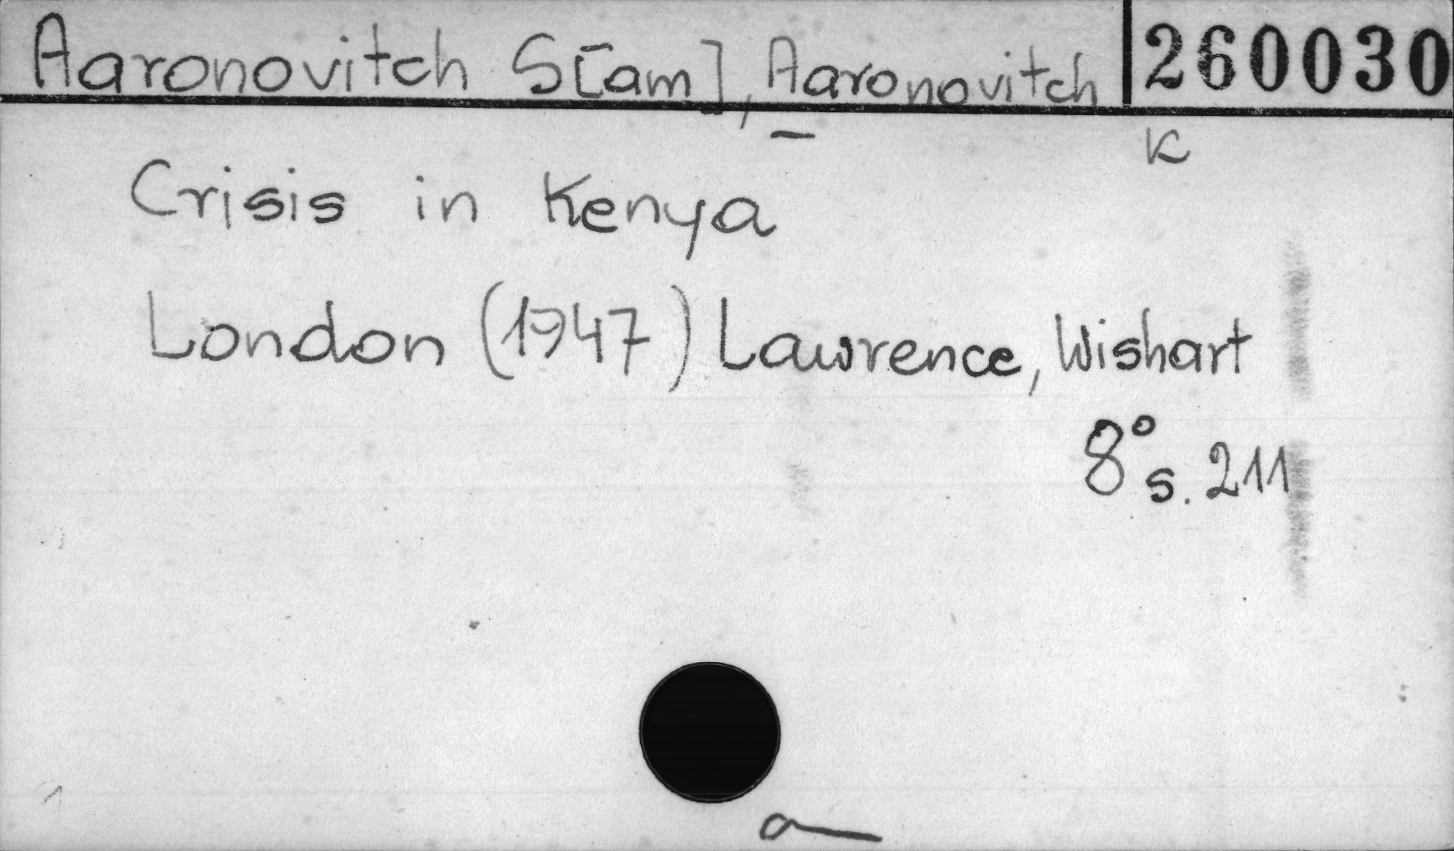 Aaronovitch S[am], Aaronovitch 260030
K
Crisis in Kenya
London (1947) Lawrence, Wishart
8° s. 211
a